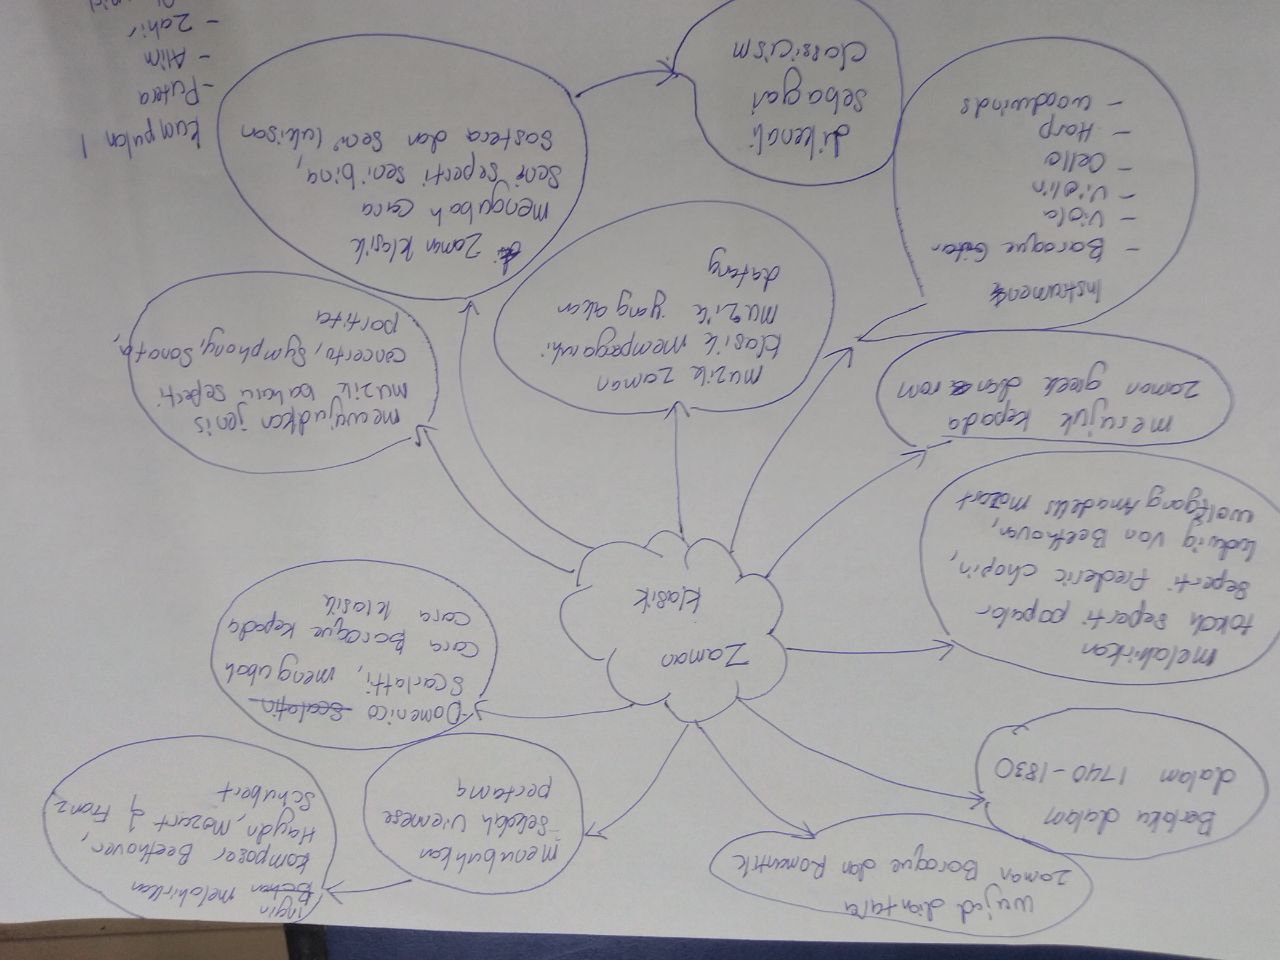 Kumpulan 1
- Putera
- Alim
- Zahir
Zaman
Klasik
wujud diantara
zaman Baroque dan Romantik
menubuhkan
Sekolah Viennese
pertama
ingin melahirkan
komposer Beethoven,
Haydn, Mozart & Franz
Schubert
Berlaku dalam
dalam 1740-1830
Domenico
Scarlatti, mengubah
cara Baroque kepada
cara klasik
melahirkan
tokoh seperti popular
seperti Frederic Chopin,
Ludwig Van Beethovan,
Wolfgang Amadeus Mozart
merujuk kepada
zaman greek dan rom
mewujudkan jenis
muzik baharu seperti
concerto, Symphony, Sonata,
partita
muzik zaman
klasik mempegaruhi
muzik yang akan
datang
Instrument
- Baroque Gitar
- Viola
- Violin
- Cello
- Harp
- woodwinds
Zaman klasik
mengubah cara
Seni seperti senibina,
sastera dan seni lukisan
dikenali
sebagai
Classicism